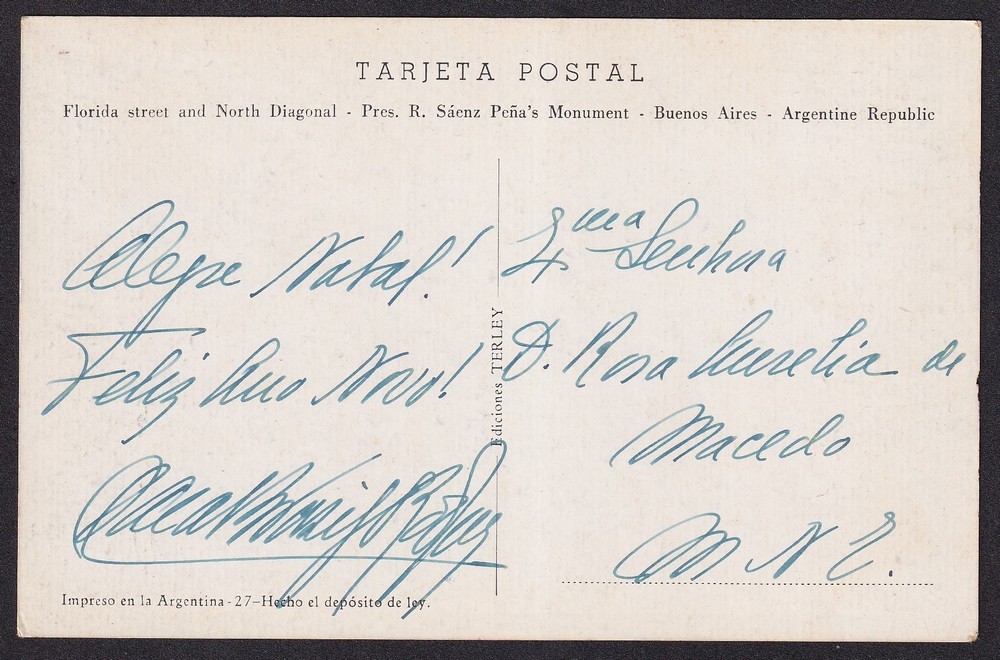 TARJETA POSTAL
Florida street and North Diagonal - Pres. R. Sáenz Peña's Monument - Buenos Aires - Argentine Republic
Alegre Natal!
Feliz Ano Novo!
Ediciones TERLEY
Exma Senhora
D. Rosa Aurelia de
Macedo
M N E.
Impreso en la Argentina - 27—Hecho el depósito de ley.